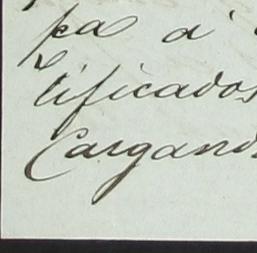 pa a'
tificados
Cargand